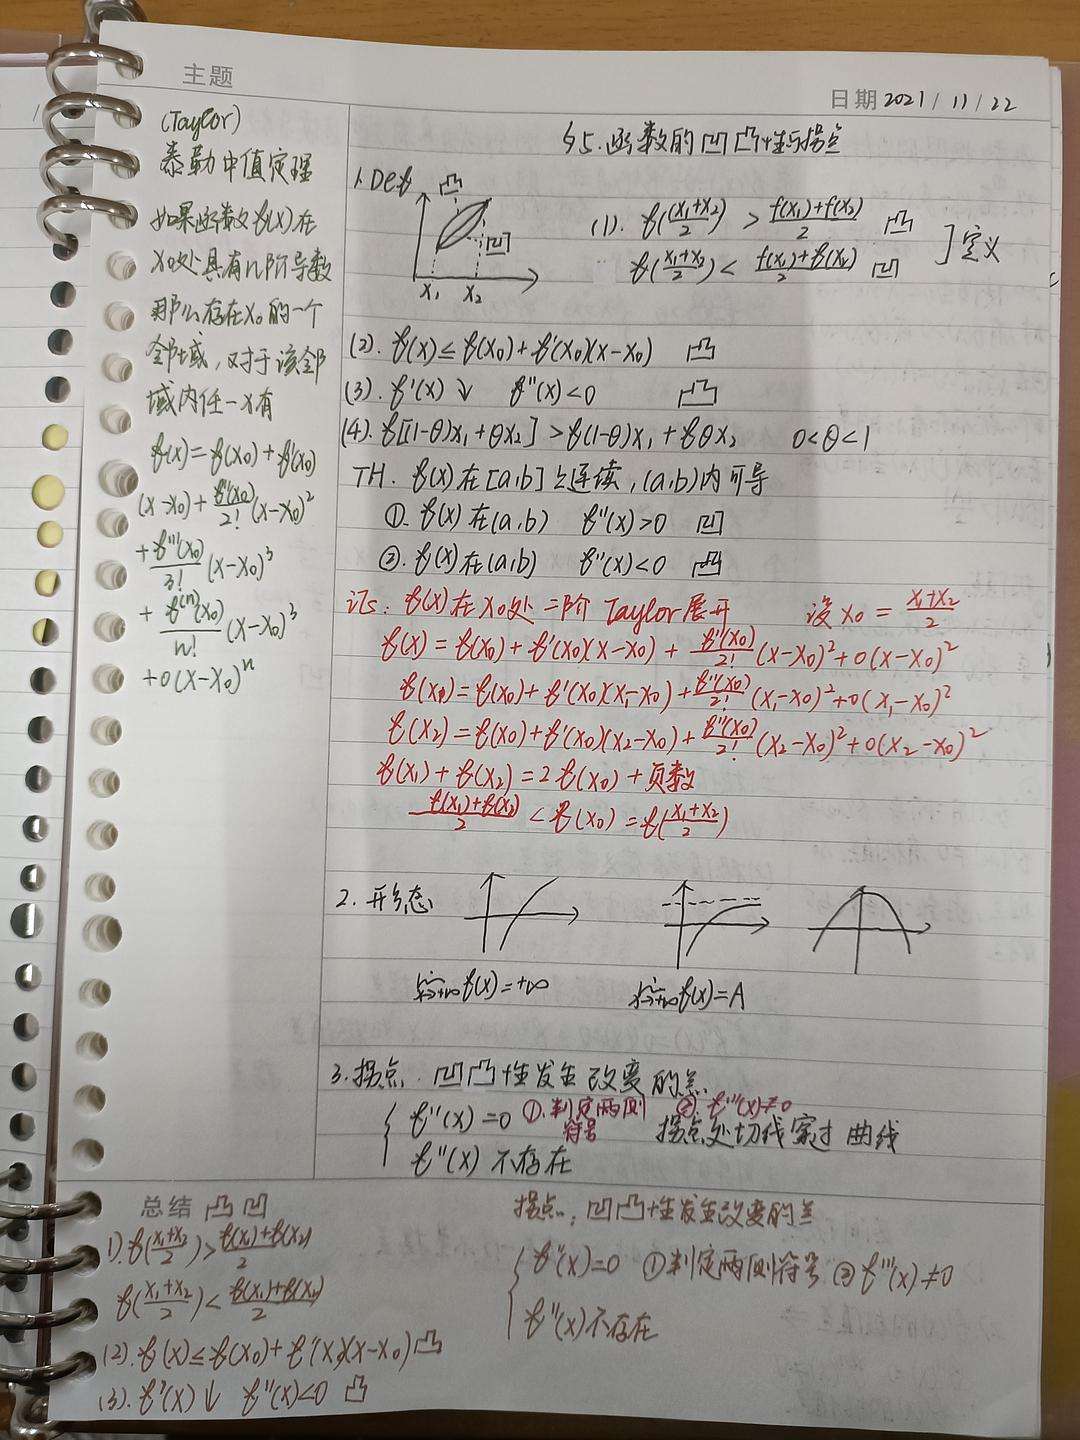 主题
日期 2021/11/22
(Taylor)
泰勒中值定理
如果函数f(x)在
x0处具有n阶导数
那么存在x0的一个
邻域,对于该邻
域内任一x有
f(x)=f(x0)+f'(x0)
(x-x0)+f''(x0)/2!(x-x0)²
+f'''(x0)/3!(x-x0)³
+f⁽ⁿ⁾(x0)/n!(x-x0)³
+o(x-x0)ⁿ
§5.函数的凹凸性与拐点
1.Def
凸
凹
x₁ x₂
(1). f((x₁+x₂)/2) > (f(x₁)+f(x₂))/2 凸
f((x₁+x₂)/2) < (f(x₁)+f(x₂))/2 凹
]定义
(2). f(x)≤f(x0)+f'(x0)(x-x0) 凸
(3). f'(x)↓ f''(x)<0 凸
(4). f[(1-θ)x₁+θx₂]>f(1-θ)x₁+fθx₂ 0<θ<1
TH. f(x)在[a,b]上连续,(a,b)内可导
①. f(x)在(a,b) f''(x)>0 凹
②. f(x)在(a,b) f''(x)<0 凸
记: f(x)在x0处二阶Taylor展开 设x0=(x₁+x₂)/2
f(x)=f(x0)+f'(x0)(x-x0)+f''(x0)/2!(x-x0)²+o(x-x0)²
f(x₁)=f(x0)+f'(x0)(x₁-x0)+f''(x0)/2!(x₁-x0)²+o(x₁-x0)²
f(x₂)=f(x0)+f'(x0)(x₂-x0)+f''(x0)/2!(x₂-x0)²+o(x₂-x0)²
f(x₁)+f(x₂)=2f(x0)+负数
(f(x₁)+f(x₂))/2<f(x0)=f((x₁+x₂)/2)
2.形态
lim x→+∞ f(x)=+∞
lim x→+∞ f(x)=A
3.拐点.凹凸性发生改变的点.
{f''(x)=0 ①.判定两侧符号 ②.f'''(x)≠0
拐点处切线穿过曲线
f''(x)不存在
总结 凸凹
1).f((x₁+x₂)/2)>(f(x₁)+f(x₂))/2
f((x₁+x₂)/2)<(f(x₁)+f(x₂))/2
(2).f(x)≤f(x0)+f'(x0)(x-x0)凸
(3).f'(x)↓ f''(x)<0 凸
拐点:凹凸性发生改变的点
{f''(x)=0 ①判定两侧符号 ②f'''(x)≠0
f''(x)不存在